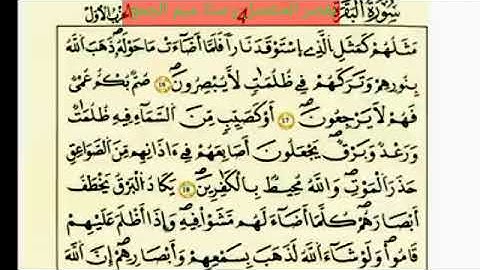 سُورَةُ الْبَقَرَة 4
مَثَلُهُمْ كَمَثَلِ الَّذِے اِسْتَوْقَدَ نَاراً فَلَمَّا أَضَاءَتْ مَا حَوْلَهُ ذَهَبَ اللَّهُ
بِنُورِهِمْ وَتَرَكَهُمْ فِے ظُلُمَاتٍ لَا يُبْصِرُونَ صُمٌّ بُكْمٌ عُمْيٌ
فَهُمْ لَا يَرْجِعُونَ أَوْ كَصَيِّبٍ مِّنَ السَّمَاءِ فِيهِ ظُلُمَاتٌ
وَرَعْدٌ وَبَرْقٌ يَجْعَلُونَ أَصَابِعَهُمْ فِے ءَاذَانِهِم مِّنَ الصَّوَاعِقِ
حَذَرَ الْمَوْتِ وَاللَّهُ مُحِيطٌ بِالْكَافِرِينَ يَكَادُ الْبَرْقُ يَخْطَفُ
أَبْصَارَهُمْ كُلَّمَا أَضَاءَ لَهُم مَّشَوْا فِيهِ وَإِذَا أَظْلَمَ عَلَيْهِمْ
قَامُوا وَلَوْ شَاءَ اللَّهُ لَذَهَبَ بِسَمْعِهِمْ وَأَبْصَارِهِمْ إِنَّ اللَّهَ